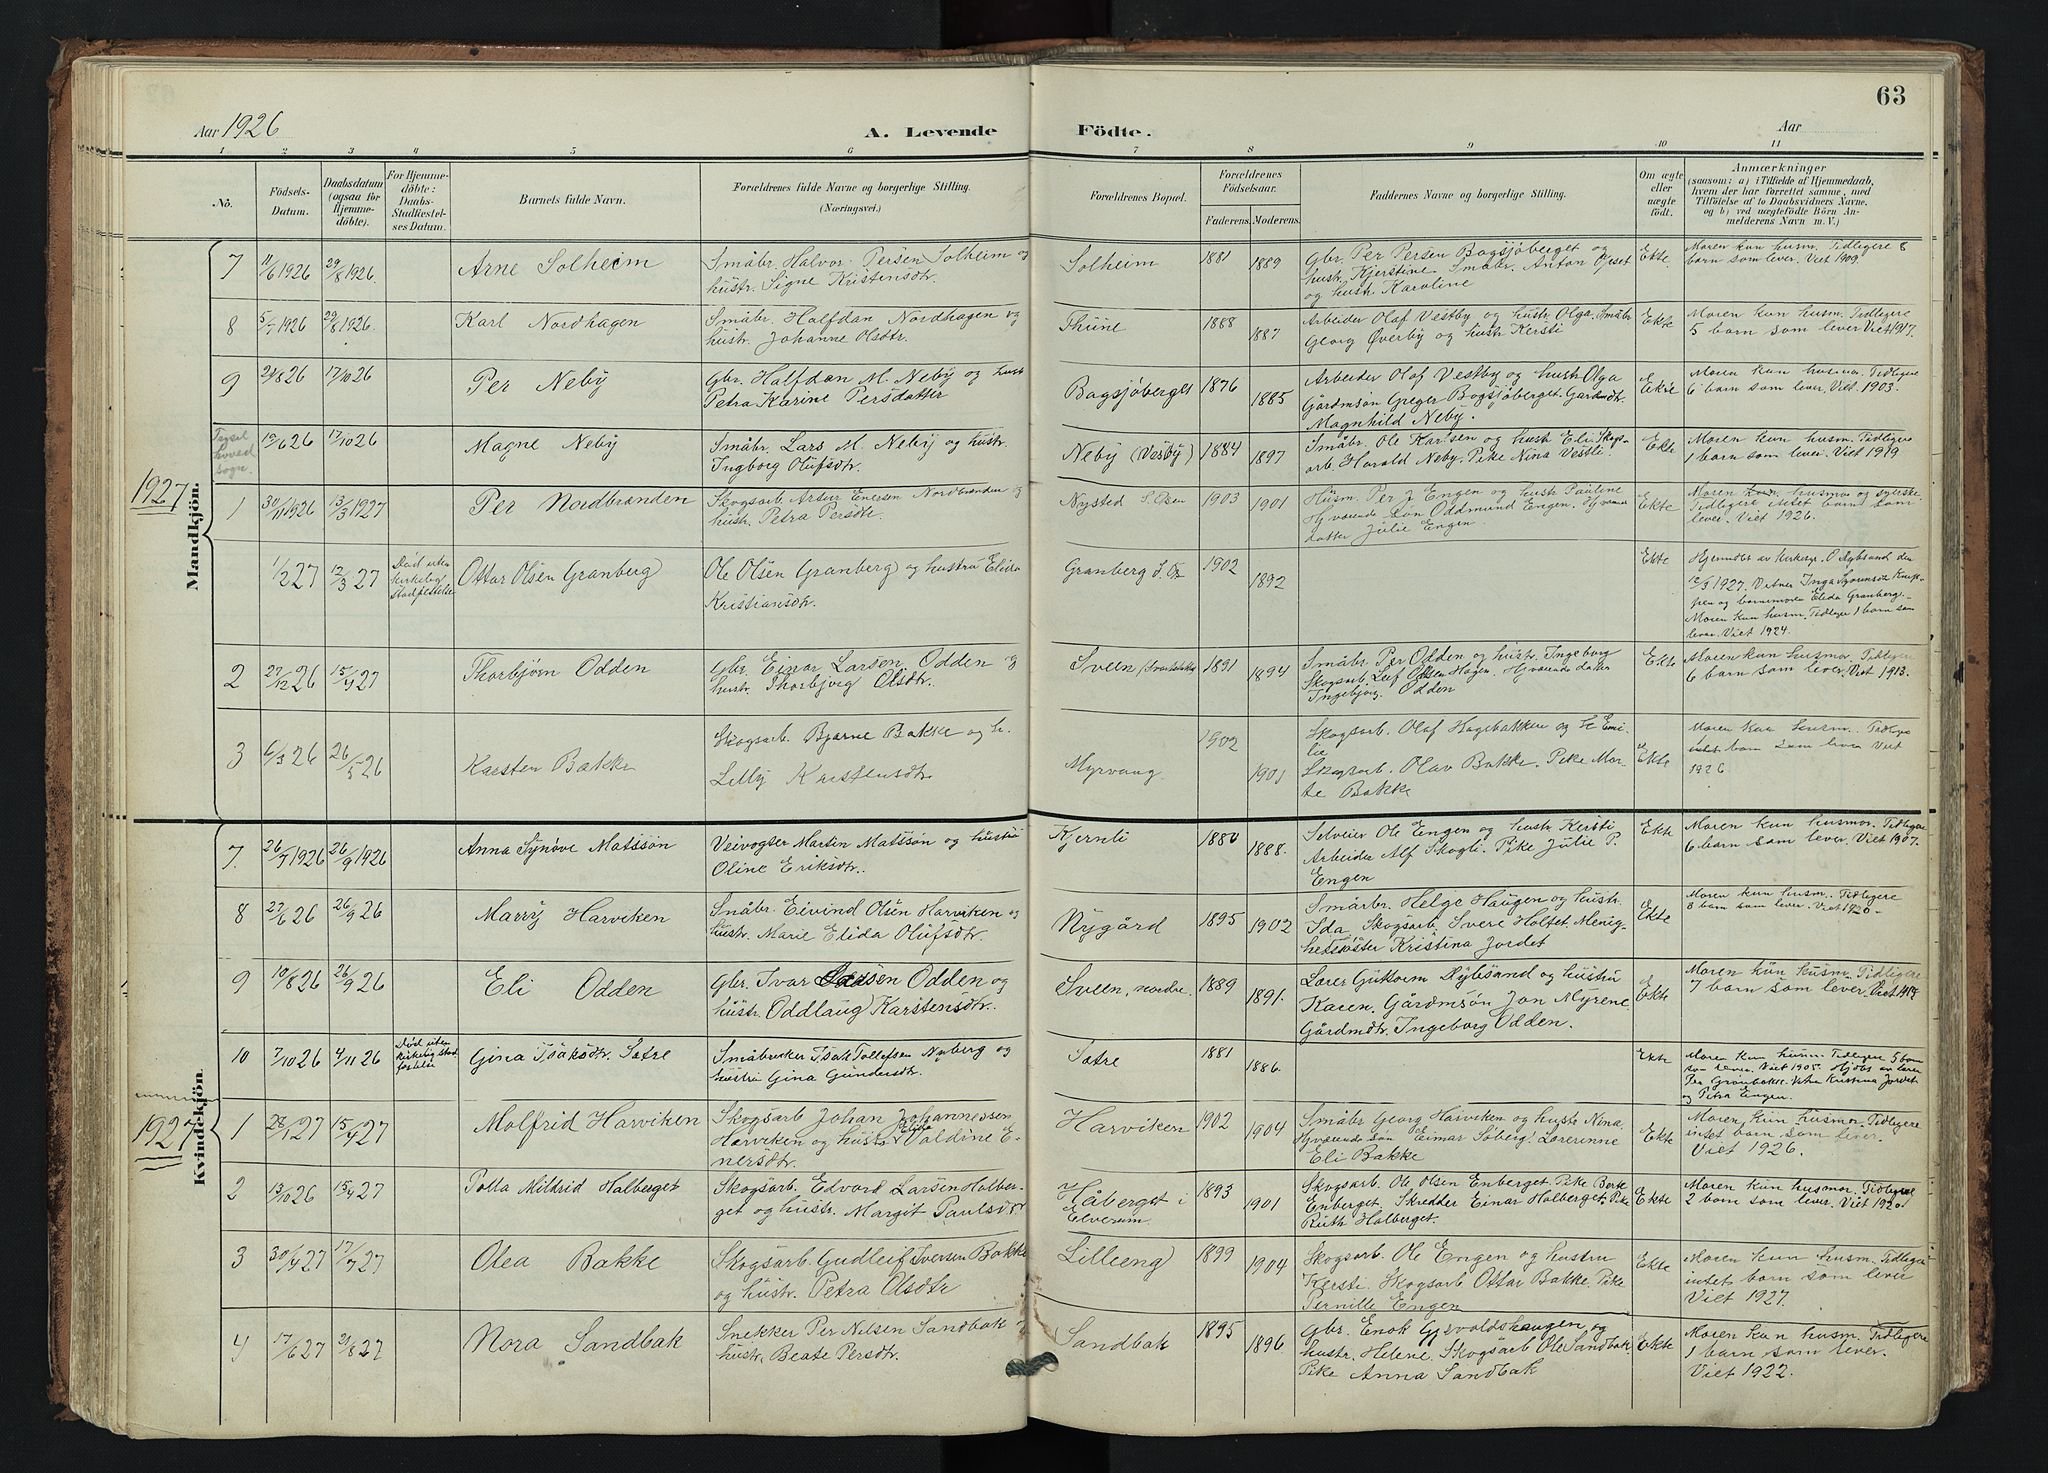 63
Aar 1926
A. Levende
Födte.
Aar
1 2 3 4 5 6 7 8 9 10 11
No.
Födsels-
Datum.
Daabsdatum
(ogsaa for
Hjemme-
döbte).
For Hjemme-
döbte:
Daabs-
Stadfæstel-
ses Datum.
Barnets fulde Navn.
Forældrenes fulde Navne og borgerlige Stilling.
(Næringsvei.)
Forældrenes Bopæl.
Forældrenes
Födselsaar.
Faderens. Moderens.
Faddernes Navne og borgerlige Stilling.
Om ægte
eller
uægte
födt.
Anmærkninger
(saasom: a) i Tilfælde af Hjemmedaab,
hvem der har forrettet samme, med
Tilföielse af to Daabsvidners Navne,
og b) ved uægtefödte Börn An-
melderens Navn m. V.)
Mandkjön.
7 11/6 1926 29/8 1926. Arne Solheim
Småbr. Halvor Persen Solheim og
hustr. Signe Kristensdtr.
Solheim 1881 1889
Gbr. Per Persen Bagsjöberget og
hustr. Kjerstine. Småbr. Anton
og hustr. Karoline
Ekte.
Moren kun husm. Tidligere 8
barn som lever. Viet 1909.
8 5/7 1926 29/8 1926. Karl Nordhagen
Småbr. Halfdan Nordhagen og
hustr. Johanne Olsdtr.
Thüne 1888 1887
Arbeider Olaf Vestby og hustr. Olga. Småbr
Georg Øverby og hustr. Kersti
Ekte
Moren kun husm. Tidligere
5 barn som lever Viet 1917.
9 24/8 26 17/10 26 Per Neby
Gbr. Halfdan M. Neby og hust
Petra Karine Persdatter
Bagsjöberget 1876 1885
Arbeider Olaf Vestby og hustr Olga
Gårdmsön Greger Bagsjöberget. Gårdmdtr.
Magnhild Neby.
Ekte
Moren kun husmor. Tidligere
6 barn som lever. Viet 1903.
Trysil
hoved
sogn.
19/6 26 17/10 26 Magne Neby
Småbr. Lars M. Neby og hustr.
Ingborg Olufsdtr.
Neby (Vesby) 1884 1897
Småbr. Ole Karlsen og hustr Eli. Skogs-
arb. Harald Neby. Pike Nina Vestli
Ekte
Moren kun husm. Tidligere
1 barn som lever. Viet 1919
1927
1 30/11 1926 13/3 1927 Per Nordbranden
Skogsarb. Artur Enersen Nordbranden og
hustr. Petra Persdtr.
Nysted S. Osen 1903 1901
Husm. Per J. Engen og hustr Pauline
Hjværende sön Oddmund Engen. Hjværende
datter Julie Engen
Ekte
Moren kun husmor og syerske.
Tidligere intet barn som
lever. Viet 1926.
1/2 27 12/3 27
Död uten
kirkelig
stadfestelse
Ottar Olsen Granberg
Ole Olsen Granberg og hustru Elida
Kristiansdtr.
Granberg S. Os 1902 1892
Ekte
Hjemdöbt av kirkesgr. O. Nybsand den
12/3 1927. Vitner Inga
og barnemoren Elida Granberg.
Moren kun husm. Tidligere 1 barn som
lever. Viet 1924.
2 27/12 26 15/4 27 Thorbjörn Odden
Gbr. Einar Larsen Odden og
hustr. Thorbjörg Olsdtr.
Sveen 1891 1894
Småbr. Per Odden og hustr. Ingeborg
Skogsarb. Leif Olsen Hagen. Hjværende datter
Ingebjörg Odden
Ekte
Moren kun husmor. Tidligere
6 barn som lever. Viet 1913.
3 6/3 26 26/5 26 Karsten Bakke
Skogsarb. Bjarne Bakke og h.
Lilly Kristensdtr
Myrvang 1902 1901
Skogsarb. Olaf Hagebakken og h Emi-
lie
Skogsarb. Olav Bakke. Pike Mar-
te Bakke
Ekte
Moren kun husm. Tidligere
intet barn som lever Viet
1926
Kvindekjön.
7. 26/7 1926 26/9 1926 Anna Synöve Matssön
Veivogter Martin Matssön og hustru
Oline Eriksdtr.
Kjernli 1886 1888.
Selveier Ole Engen og hustr Kersti
Arbeider Alf Skogli. Pike Julie P.
Engen
Ekte
Moren kun husmor. Tidligere
6 barn som lever. Viet 1907.
8 27/6 26 26/9 26 Marry Harviken
Småbr. Eivind Olsen Harviken og
hustr. Marie Elida Olufsdtr.
Nygård 1895 1902
Småbr. Helge Haugen og hustr.
Ida. Skogsarb. Svere Holtet. Menig-
hetssöster Kristina Jordet
Ekte
Moren kun husm. Tidligere
3 barn som lever. Viet 1920.
9 10/8 26 26/9 26 Eli Odden
Gbr. Ivar Larsen Odden og
hustr. Oddlaug Karstensdtr.
Sveen, nordre. 1889 1891.
Lærer Guttorm Nybsand og hustru
Karen. Gårdmsön Jon Myrene.
Gårdmdtr. Ingeborg Odden.
Ekte
Moren kun husm. Tidligere
7 barn som lever. Viet
10 7/10 26 4/11 26
Död uten
kirkelig stad
festelse
Gina Isaksdtr. Sætre
Småbruker Isak Tollefsen Nyberg og
hustru Gina Gundersdtr.
Sætre 1881 1886.
Ekte
Moren kun husm. Tidligere 5 barn
som lever. Viet 1905. Hjdöbt av lærer
Per Grönbakke. Vitner Kristina Jordet
og Petra Engen.
1927
1 28/1 27 15/4 27 Molfrid Harviken
Skogsarb Johan Johannessen
Harviken og hustr Elida Valdine E-
nersdtr.
Harviken 1902 1904
Småbr Georg Harviken og hustr Nina.
Hjværende sön Eimar Söberg. Lærerinne
Eli Bakke
Ekte
Moren kun husmor. Tidligere
intet barn som lever.
Viet 1926.
2 13/10 26 15/4 27 Tolla Mildrid Halberget
Skogsarb. Edvard Larsen Halber-
get og hustr. Margit Paulsdtr
Håberget i
Elverum. 1893 1901
Skogsarb. Ole Olsen Enberget. Pike Berte
Enberget. Skredder Einar Halberget. Pike
Ruth Halberget.
Ekte
Moren kun husmor. Tidligere
2 barn som lever. Viet 1920.
3 30/4 27 17/7 27 Olea Bakke
Skogsarb Gudleif Iversen Bakke
og hustr. Petra Olsdtr
Lilleeng 1899 1904
Skogsarb. Ole Engen og hustru
Kersti. Skogsarb Ottar Bakke. Pike
Pernille Engen
Ekte
Moren kun husm. Tidligere
intet barn som lever
Viet 1927.
4 17/6 27 21/8 27 Nora Sandbak
Snekker Per Nilsen Sandbak og
hustr. Beate Persdtr.
Sandbak 1895 1896
Gbr. Enok Gjevoldshaugen og
hustr. Helene. Skogsarb Ole Sandbak.
Pike Anna Sandbak
Ekte
Moren kun husm. Tidligere
1 barn som lever.
Viet 1922.